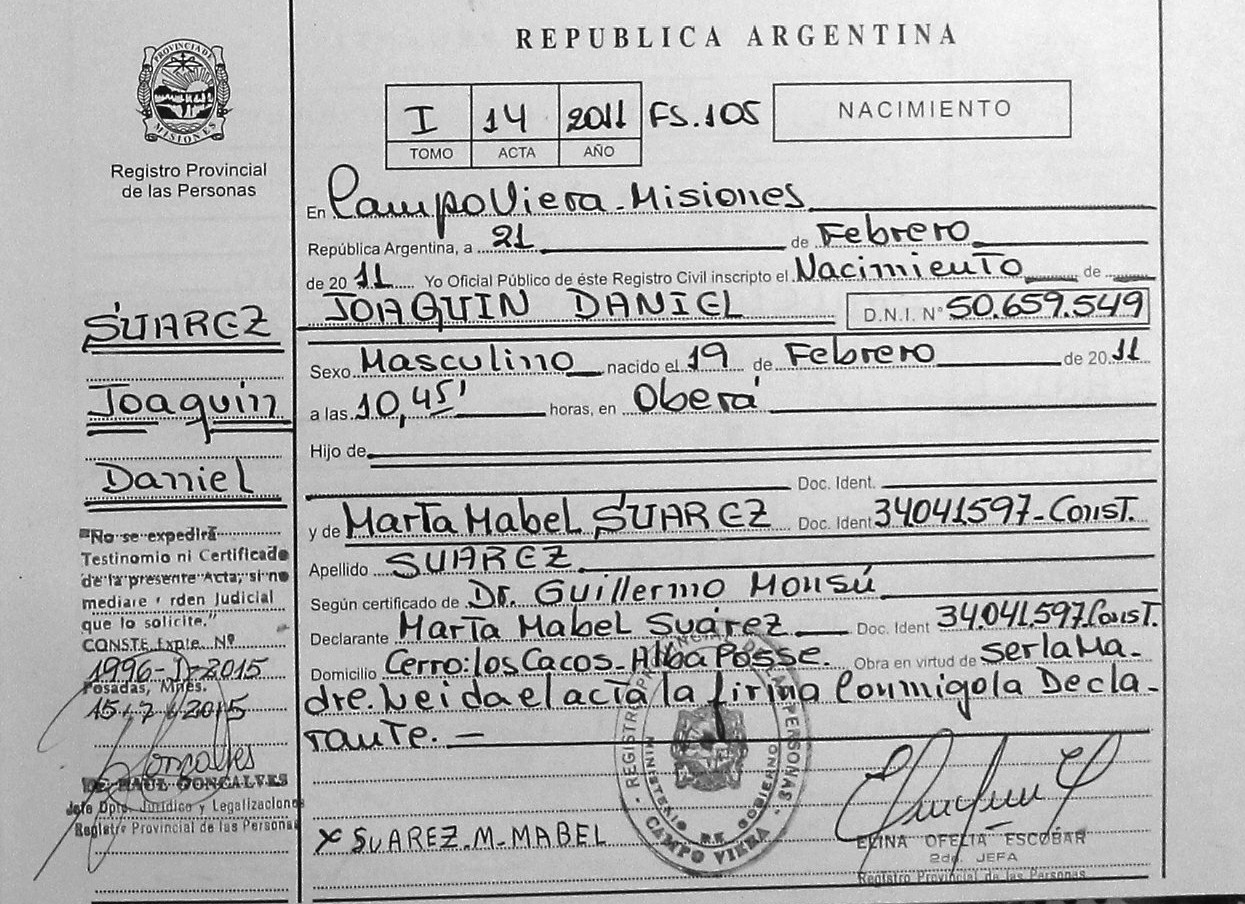 REPUBLICA ARGENTINA
PROVINCIA DE MISIONES
Registro Provincial
de las Personas
I 14 2011 FS.105
TOMO ACTA AÑO
NACIMIENTO
En Campo Viera - Misiones
República Argentina, a 21 de Febrero
de 2011 Yo Oficial Público de éste Registro Civil inscripto el Nacimiento de
JOAQUIN DANIEL D.N.I. N° 50.659.549
Sexo Masculino nacido el 19 de Febrero de 2011
a las 10,45' horas, en Oberá
Hijo de
Doc. Ident.
y de Marta Mabel SUAREZ Doc. Ident 34041597-Const.
Apellido SUAREZ
Según certificado de Dr. Guillermo Monsú
Declarante Marta Mabel Suárez Doc. Ident 34.041.597 Const.
Domicilio Cerro: los Cacos - Alba Posse. Obra en virtud de ser la Ma-
dre. Leida el acta la firma Conmigo la Decla-
rante. —
X SUAREZ. M. MABEL
REGISTRO PROVINCIAL DE LAS PERSONAS
MINISTERIO DE GOBIERNO
CAMPO VIERA
ELINA OFELIA ESCOBAR
2da. JEFA
Registro Provincial de las Personas
SUAREZ
Joaquin
Daniel
"No se expedirá
Testimonio ni Certificado
de la presente Acta, si no
mediare rden Judicial
que lo solicite."
CONSTE Expte. Nº
1996-D-2015
Posadas, Mnes.
15/7/2015
Goncalves
RAUL GONCALVES
Jefe Dpto. Jurídico y Legalizaciones
Registro Provincial de las Personas